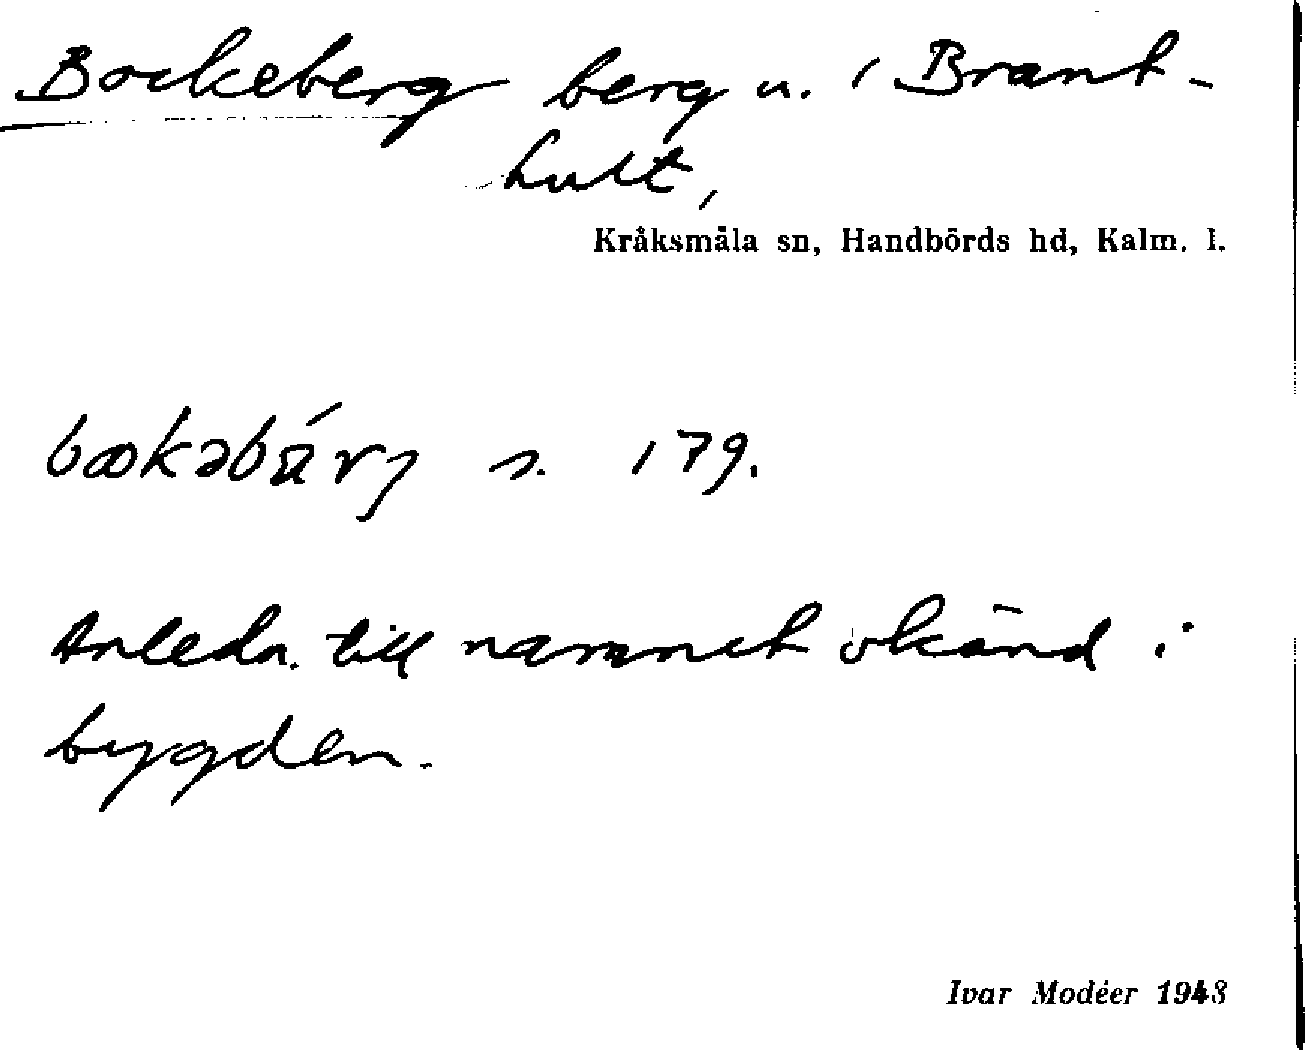 Bockeberg berg u. i Brant-
hult,
Kråksmåla sn, Handbörds hd, Kalm. l.
s. 179.
Anledn. till namnet okänd i
bygden.
Ivar Modéer 1943